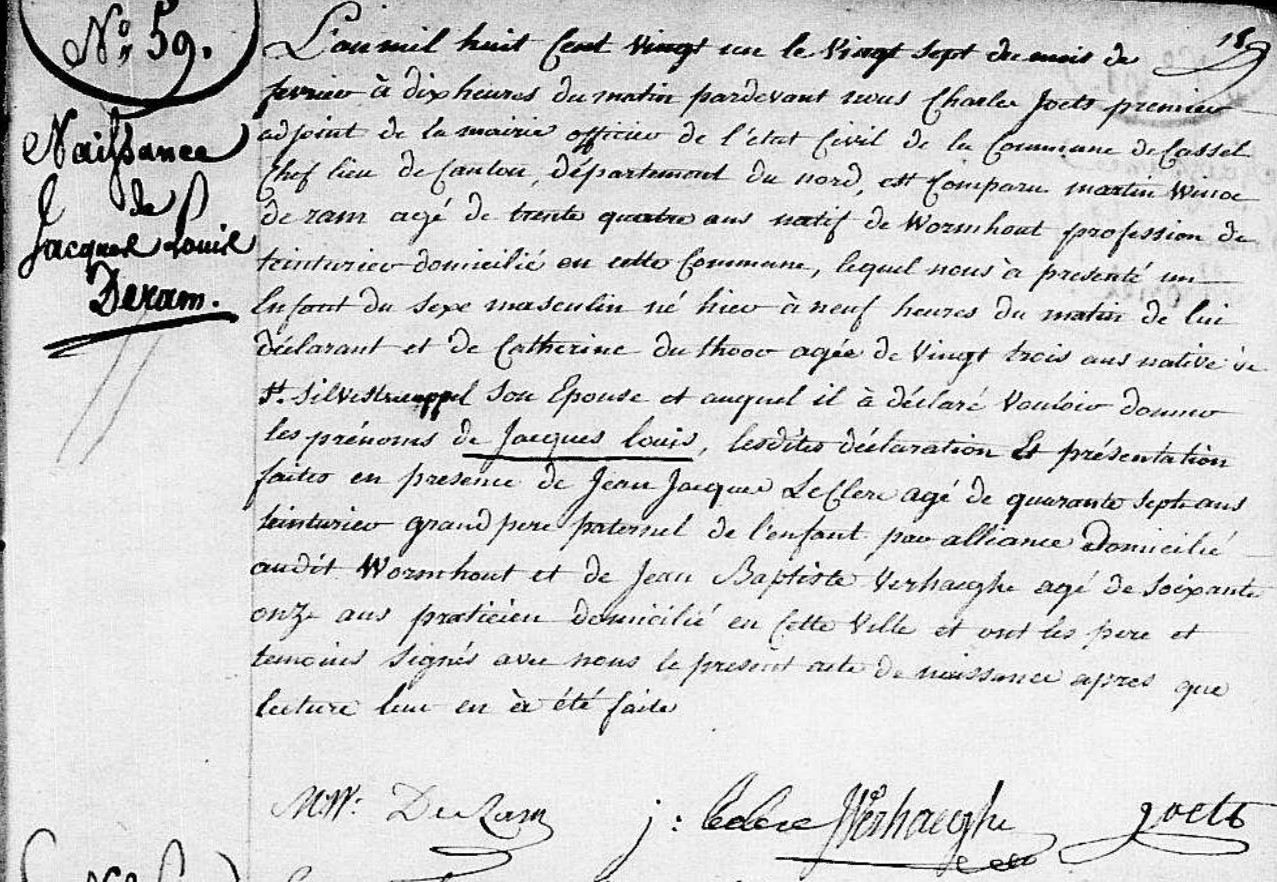 N° 59.
Naissance
de
Jacques Louis
Deram.
L'an mil huit Cent Vingt un le Vingt Sept du mois de
fevrier à dix heures du matin pardevant nous Charles Joets premier
adjoint de la mairie officier de l'état Civil de la Commune de Cassel
Chef lieu de Canton, département du nord, est Comparu martin Winoc
de ram agé de trente quatre ans natif de Wormhout profession de
teinturier domicilié en cette Commune, lequel nous à presenté un
Enfant du sexe masculin né hier à neuf heures du matin de lui
déclarant et de Catherine du thoor agée de Vingt trois ans native de
St. Silvestrecappel son Epouse et auquel il à déclaré Vouloir donner
les prénoms de Jacques Louis, lesdites déclaration Et présentation
faites en presence de Jean Jacques LeClerc agé de quarante Sept ans
teinturier grand pere paternel de l'enfant par alliance Domicilié
audit Wormhout et de Jean Baptiste Verhaeghe agé de Soixante
onze ans praticien domicilié en Cette Ville et ont les pere et
temoins Signés avec nous le present acte de naissance apres que
lecture leur en à été faite
M.W. De Ram j: leclerc JVerhaeghe Joets